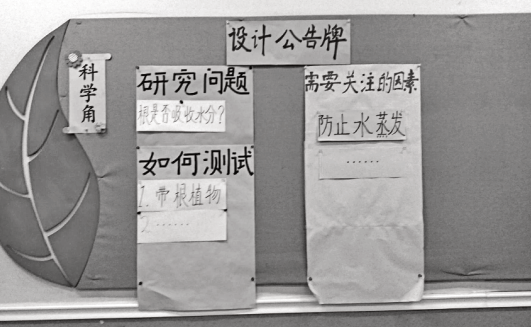 设计公告牌
科学角
研究问题
根是否吸收水分？
如何测试
1. 带根植物
2. ……
需要关注的因素
防止水蒸发
……